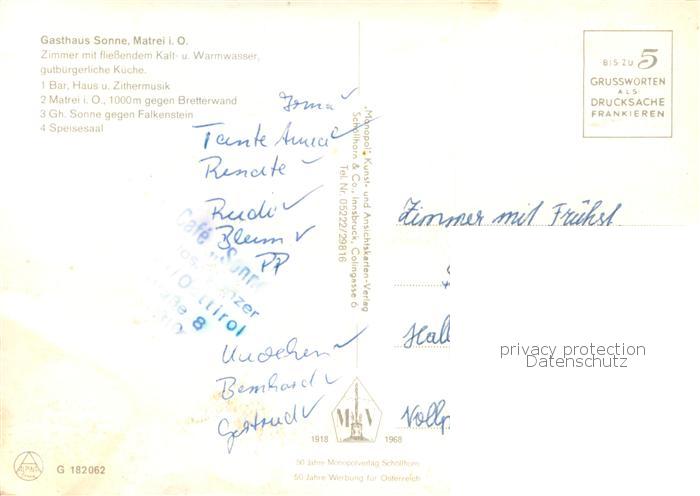 Gasthaus Sonne, Matrei i. O.
Zimmer mit fließendem Kalt- u. Warmwasser,
gutbürgerliche Küche.
1 Bar, Haus u. Zithermusik
2 Matrei i. O., 1000 m gegen Bretterwand
3 Gh. Sonne gegen Falkenstein
4 Speisesaal
BIS ZU 5
GRUSSWORTEN
ALS
DRUCKSACHE
FRANKIEREN
Irma
Tante Anna
Renate
Rudi
Blum
PP
Café "Sonne
Osttirol
8
Bernhard
Gertrud
"Monopol", Kunst- und Ansichtskarten-Verlag
Schöllhorn & Co., Innsbruck, Colingasse 6
Tel. Nr. 05222/29816
Zimmer mit Frühst.
Hal
Vollp
privacy protection
Datenschutz
M V
1918 1968
50 Jahre Monopolverlag Schöllhorn
50 Jahre Werbung für Österreich
G 182062